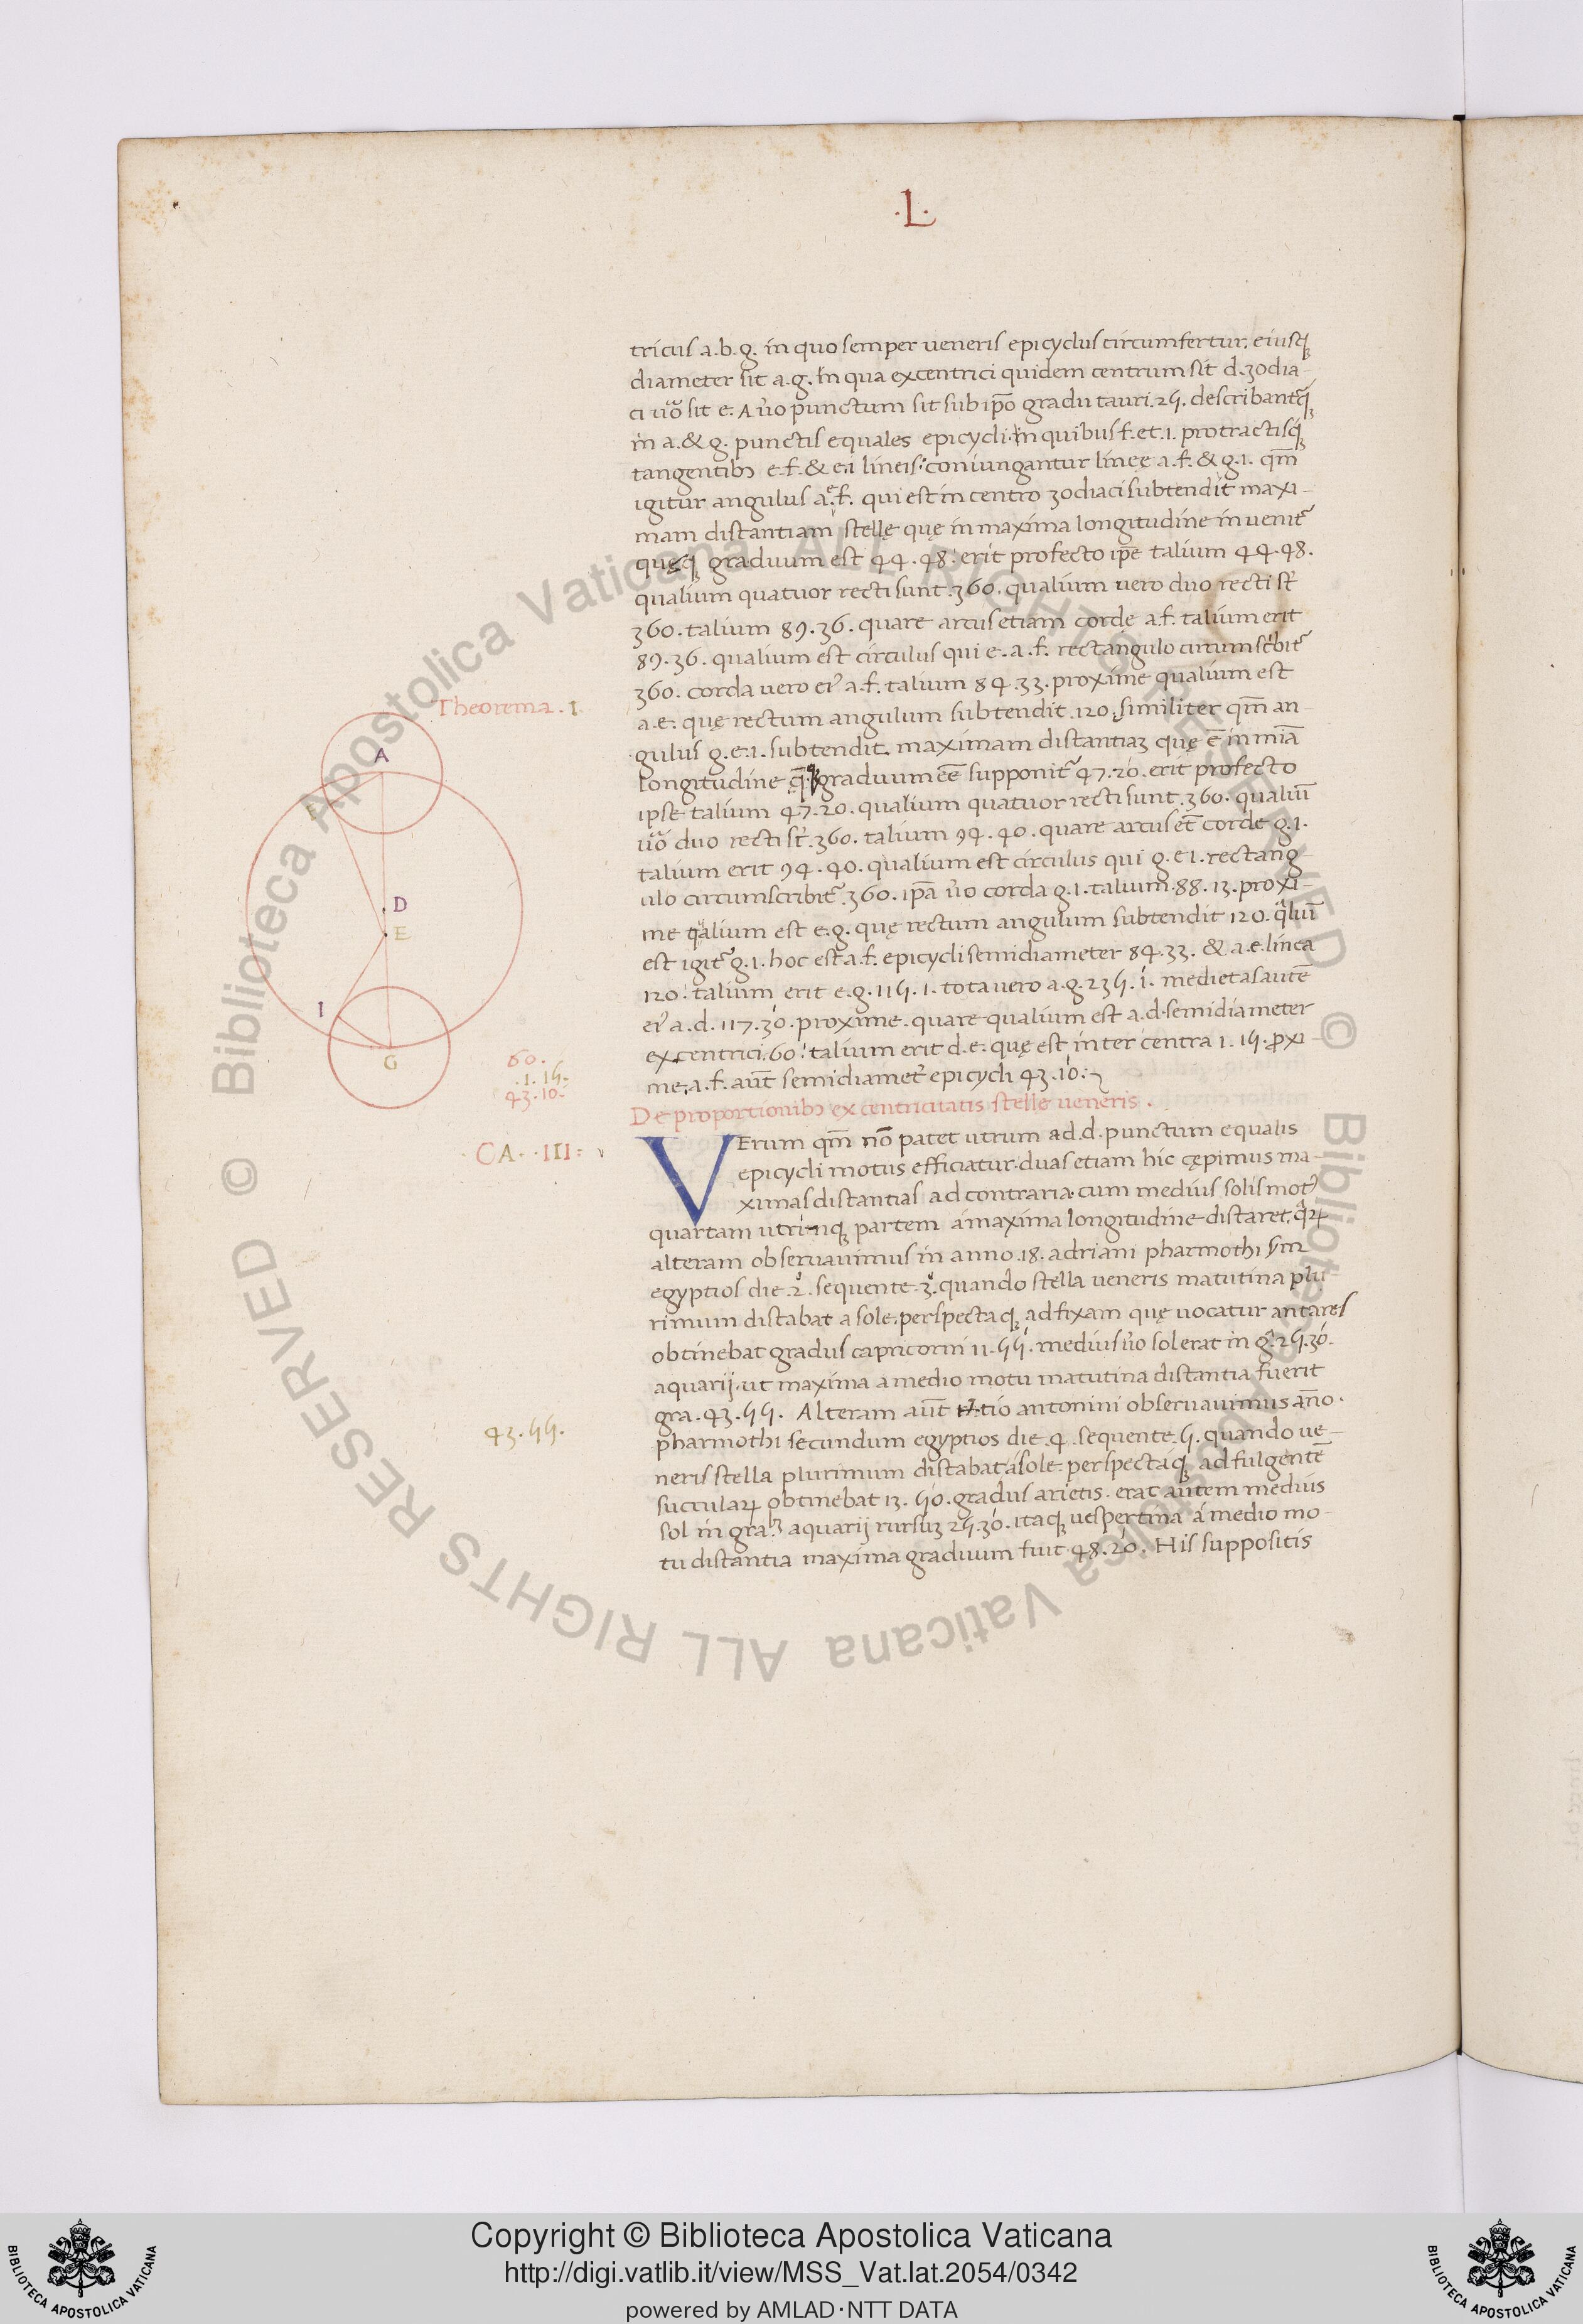 .L.
tricus a.b.g. in quo semper ueneris epicyclus circumfertur. eiusq̢
diameter sit a.g. in qua excentrici quidem centrum sit d. zodia-
ci ũo sit e. A ũo punctum sit sub ip̄o gradu tauri .25. describantq̢
in a. & g. punctis equales epicycli. in quibus f. et .i. protractisq̢
tangentibꝫ e.f. & e.i lineis: coniungantur lineę a.f. & g.i. qm̄
igitur angulus a.e.f. qui est in centro zodiaci subtendit maxi-
mam distantiam stellę quę in maxima longitudine inuenit᷑
quęq̢ graduum est 44.48: erit profecto ip̄e talium 44.48.
qualium quatuor recti sunt .360. qualium uero duo recti st̄
360. talium 89.36. quare arcus etiam corde a.f. talium erit
89.36. qualium est circulus qui e.a.f. rectangulo circumscribit᷑
360. corda uero ei᷒ a.f. talium 84.33. proxime qualium est
a.e. quę rectum angulum subtendit .120. similiter qm̄ an-
gulus g.e.i. subtendit maximam distantiaꝫ quę ē in miā
longitudine q̄ graduum eē supponit᷑ 47.20. erit profecto
ipse talium 47.20. qualium quatuor recti sunt .360. qualiū
ũo duo recti st̄ .360. talium 94.40. quare arcus et̄ corde g.i.
talium erit 94.40. qualium est circulus qui g.e i. rectang-
ulo circumscribit᷑ .360. ip̄a ũo corda g.i. talium .88.13. proxi-
me qalium est e.g. quę rectum angulum subtendit 120. qͥliū
est igit᷑ g.i. hoc est a.f. epicycli semidiameter 84.33. & a.e. linea
120: talium erit e.g. 115.1. tota uero a.g. 235.i. medietas autē
ei᷒ a.d. 117.30. proxime. quare qualium est a.d. semidiameter
excentrici .60: talium erit d.e. quę est inter centra 1.15. ꝓxi-
me, a.f. aūt semidiamet᷑ epicycli 43.10:
Theorema .1.
A
D
E
I
G
60.
.1.15.
43.10.
De proportionibꝫ excentricitatis stellę ueneris.
CA. .III:
VErum qm̄ nō patet utrum ad .d. punctum equalis
epicycli motus efficiatur. duas etiam hic cępimus ma-
ximas distantias ad contraria. cum medius solis mot᷒
quartam utrinq̢ partem á maxima longitudine distaret. qͣꝝ
alteram obseruauimus in anno .18. adriani pharmothi sm̄
egyptios die .2. sequente .3. quando stella ueneris matutina plu-
rimum distabat a sole. perspectaq̢ ad fixam quę uocatur antares
obtinebat gradus capricorni 11.55. medius ũo sol erat in g. 25.30.
aquarij. ut maxima a medio motu matutina distantia fuerit
gra. 43.55. Alteram aūt tio antonini obseruauimus an̄o.
43.55.
pharmothi secundum egyptios die .4. sequente .5. quando ue-
neris stella plurimum distabat á sole. perspectáq̢ ad fulgentē
succulaꝝ obtinebat 13.50. gradus arietis. erat autem medius
sol in gra.bꝫ aquarij rursuꝫ 25.30. itaq̢ uespertina á medio mo-
tu distantia maxima graduum fuit .48.20. His suppositis
Copyright © Biblioteca Apostolica Vaticana
http://digi.vatlib.it/view/MSS_Vat.lat.2054/0342
powered by AMLAD·NTT DATA
BIBLIOTECA APOSTOLICA VATICANA
BIBLIOTECA APOSTOLICA VATICANA
© Biblioteca Apostolica Vaticana ALL RIGHTS RESERVED
© Biblioteca Apostolica Vaticana ALL RIGHTS RESERVED